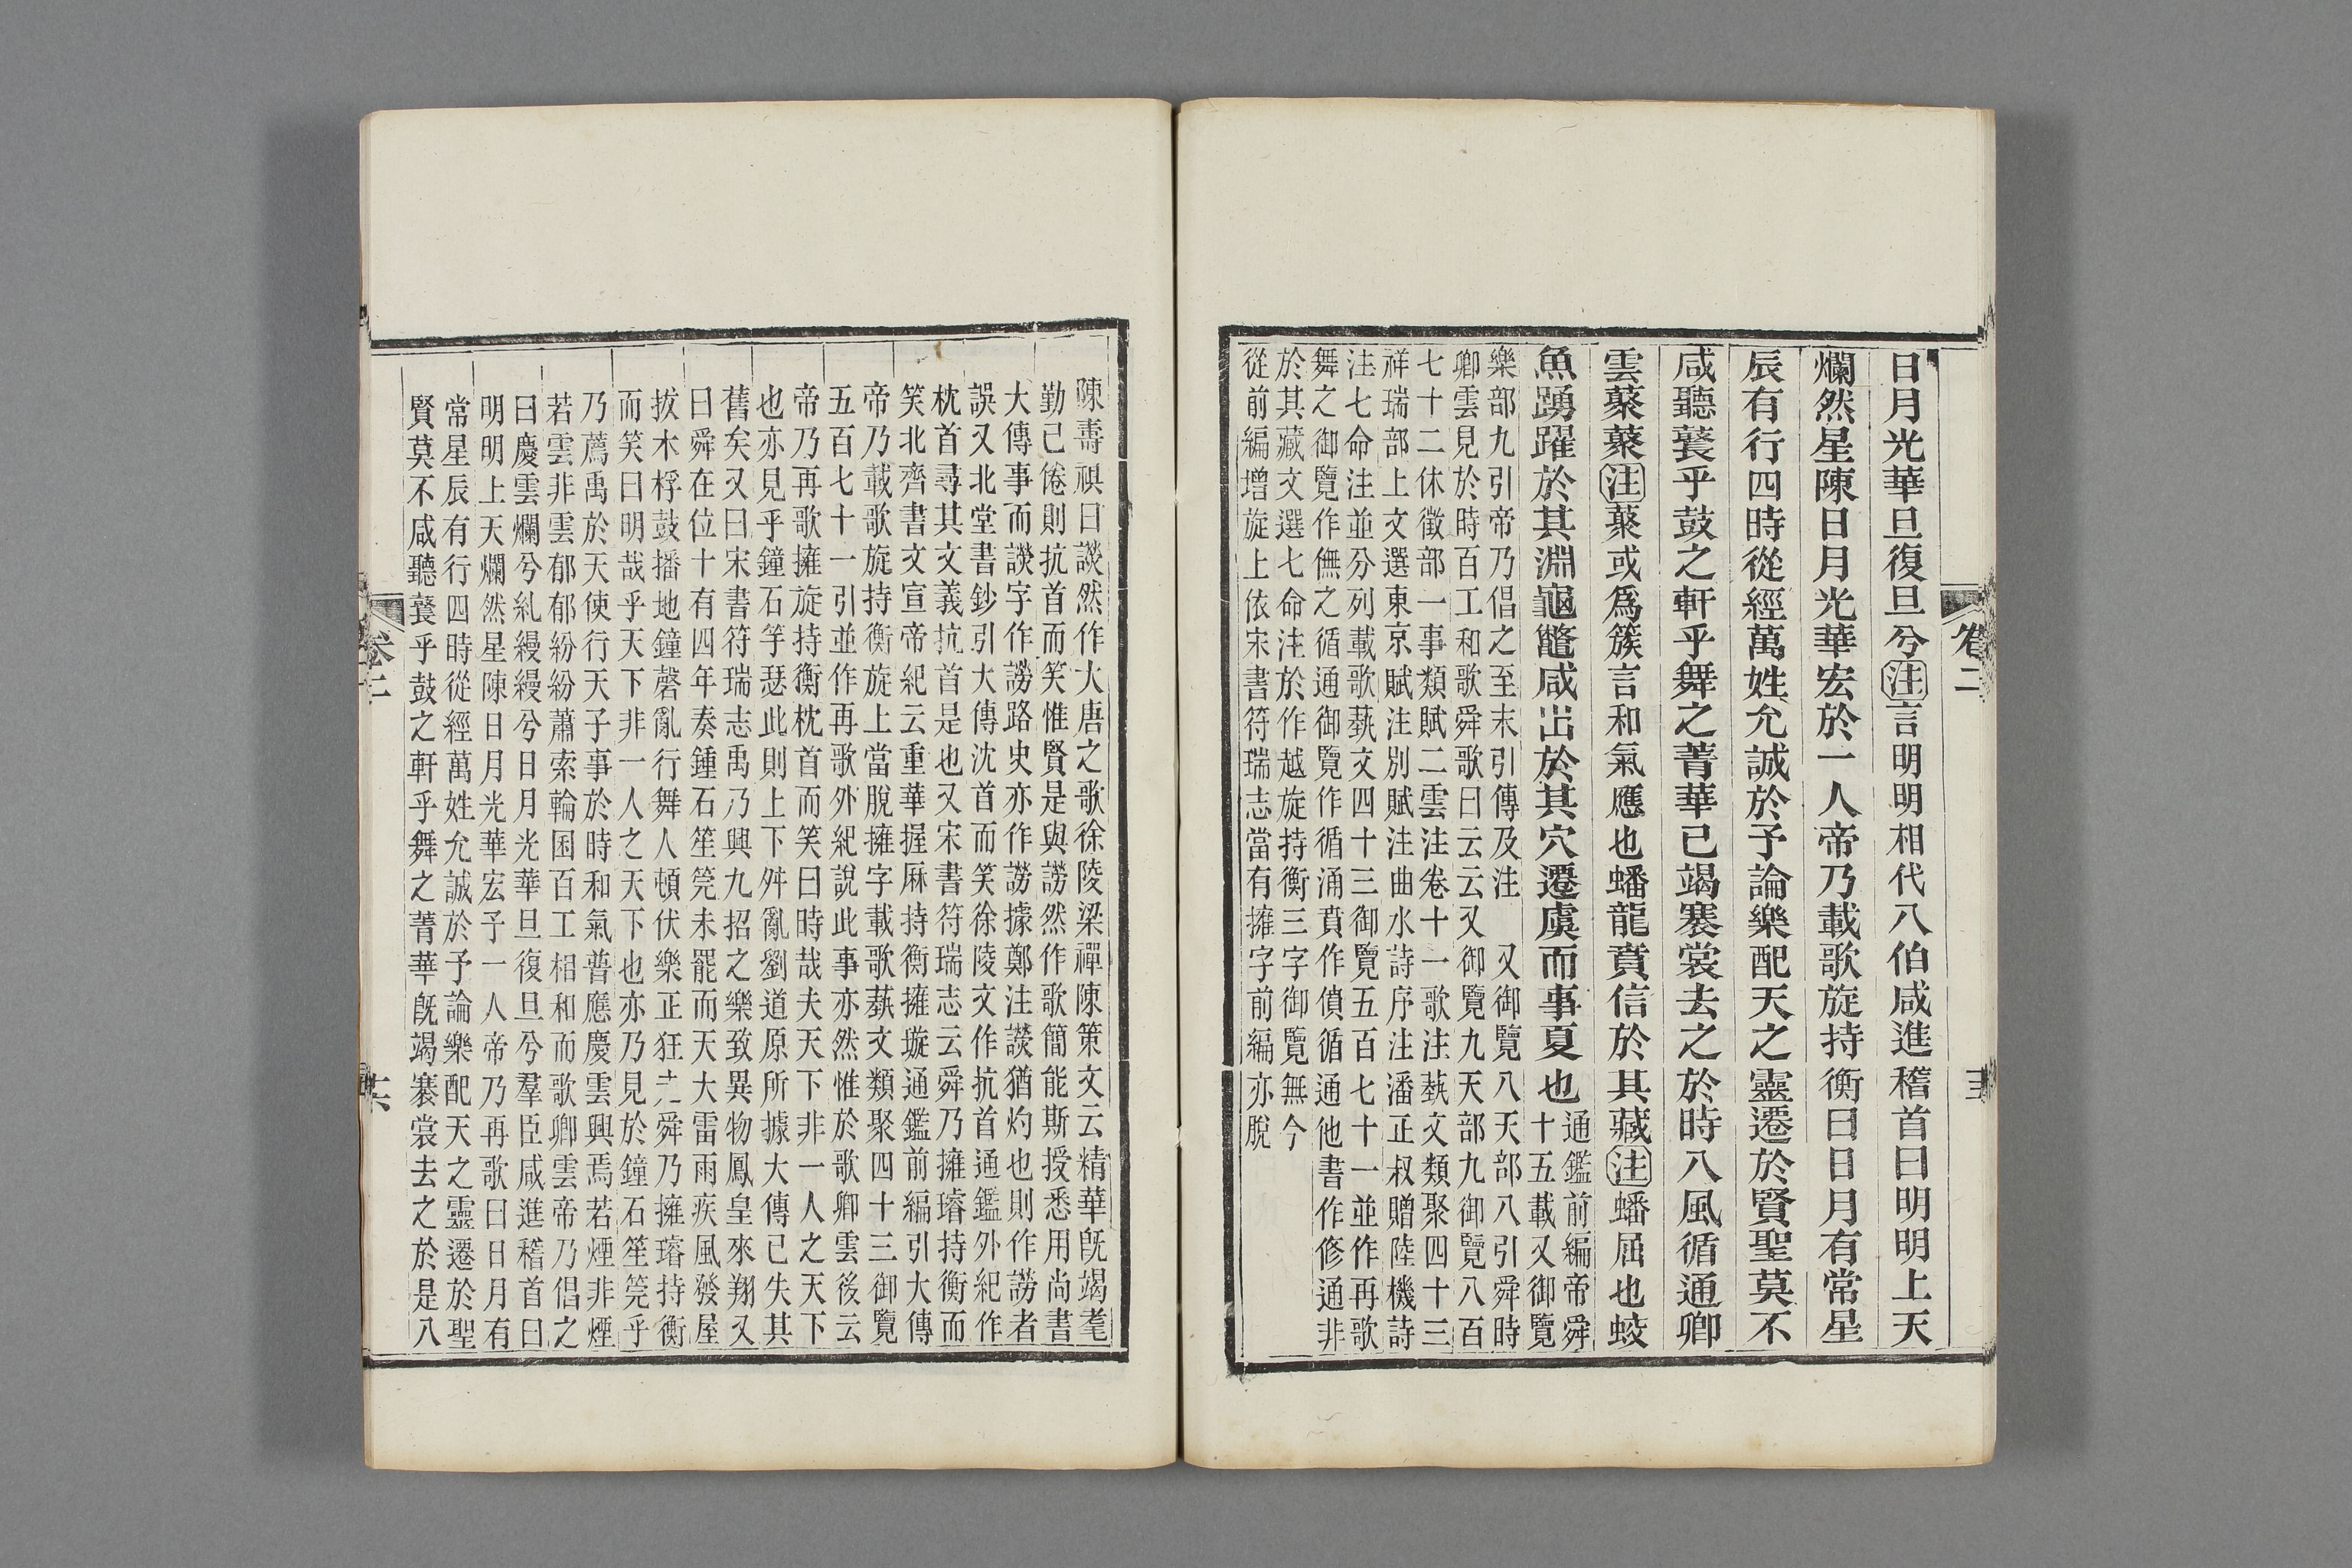 日月光華旦復旦兮注言明明相代八伯咸進稽首曰明明上天
爛然星陳日月光華宏於一人帝乃載歌旋持衡曰日月有常星
辰有行四時從經萬姓允誠於予論樂配天之靈遷於賢聖莫不
咸聽鼚乎鼓之軒乎舞之菁華已竭褰裳去之於時八風循通卿
雲蔾蔾注蔾或爲簇言和氣應也蟠龍賁信於其藏注蟠屈也蛟
魚踴躍於其淵龜鼈咸出於其穴遷虞而事夏也
通鑑前編帝舜
十五載又御覽
樂部九引帝乃倡之至末引傳及注 又御覽八天部八引舜時
卿雲見於時百工和歌舜歌曰云云又御覽九天部九御覽八百
七十二休徵部一事類賦二雲注卷十一歌注蓺文類聚四十三
祥瑞部上文選東京賦注別賦注曲水詩序注潘正叔贈陸機詩
注七命注並分列載歌蓺文四十三御覽五百七十一並作再歌
舞之御覽作儛之循通御覽作循涌賁作僨循通他書作修通非
於其藏文選七命注於作越旋持衡三字御覽無今
從前編增旋上依宋書符瑞志當有擁字前編亦脫
卷二
陳壽祺曰談然作大唐之歌徐陵梁禪陳策文云精華旣竭耄
勤已倦則抗首而笑惟賢是與謗然作歌簡能斯授悉用尚書
大傳事而談字作謗路史亦作謗據鄭注談猶灼也則作謗者
誤又北堂書鈔引大傳沈首而笑徐陵文作抗首通鑑外紀作
枕首尋其文義抗首是也又宋書符瑞志云舜乃擁璿持衡而
笑北齊書文宣帝紀云重華握厤持衡擁璇通鑑前編引大傳
帝乃載歌旋持衡旋上當脫擁字載歌蓺文類聚四十三御覽
五百七十一引並作再歌外紀說此事亦然惟於歌卿雲後云
帝乃再歌擁旋持衡枕首而笑曰時哉夫天下非一人之天下
也亦見乎鐘石竽瑟此則上下舛亂劉道原所據大傳已失其
舊矣又曰宋書符瑞志禹乃興九招之樂致異物鳳皇來翔又
曰舜在位十有四年奏鍾石笙筦未罷而天大雷雨疾風發屋
拔木桴鼓播地鐘磬亂行舞人頓伏樂正狂走舜乃擁璿持衡
而笑曰明哉乎天下非一人之天下也亦乃見於鐘石笙筦乎
乃薦禹於天使行天子事於時和氣普應慶雲興焉若煙非煙
若雲非雲郁郁紛紛蕭索輪囷百工相和而歌卿雲帝乃倡之
曰慶雲爛兮糺縵縵兮日月光華旦復旦兮羣臣咸進稽首曰
明明上天爛然星陳日月光華宏予一人帝乃再歌曰日月有
常星辰有行四時從經萬姓允誠於予論樂配天之靈遷於聖
賢莫不咸聽鼚乎鼓之軒乎舞之菁華旣竭褰裳去之於是八
卷二
六